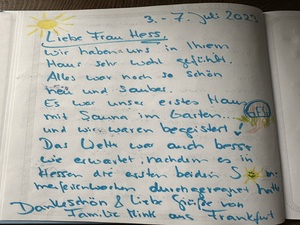 3. - 7. Juli 2023
Liebe Frau Hess.
wir haben uns in Ihrem
Haus sehr wohl gefühlt.
Alles war noch so schön
neu und sauber.
Es war unser erstes Haus
mit Sauna im Garten
und wir waren begeistert!
Das Wetter war auch besser
wie erwartet, nachdem es in
Hessen die ersten beiden
durchgeregnet hatte
Dankeschön & liebe Grüße von
Familie Mink aus Frankfurt